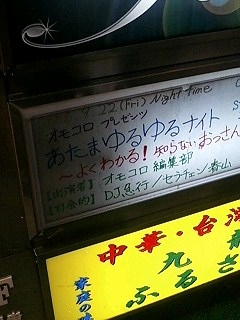 22(Fri) Night time
オモコロ プレゼンツ
あたまゆるゆるナイト
～よくわかる!知らないおっさん
【出演者】オモコロ 編集部
【司会的】DJ急行/セラチェン春山
中華・台湾
九龍
ふるさ
家庭の味